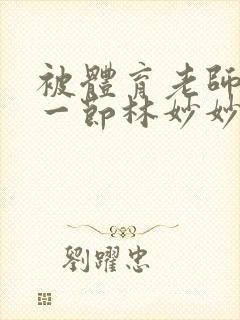 被體育老師
一節林妙妙
劉躍忠